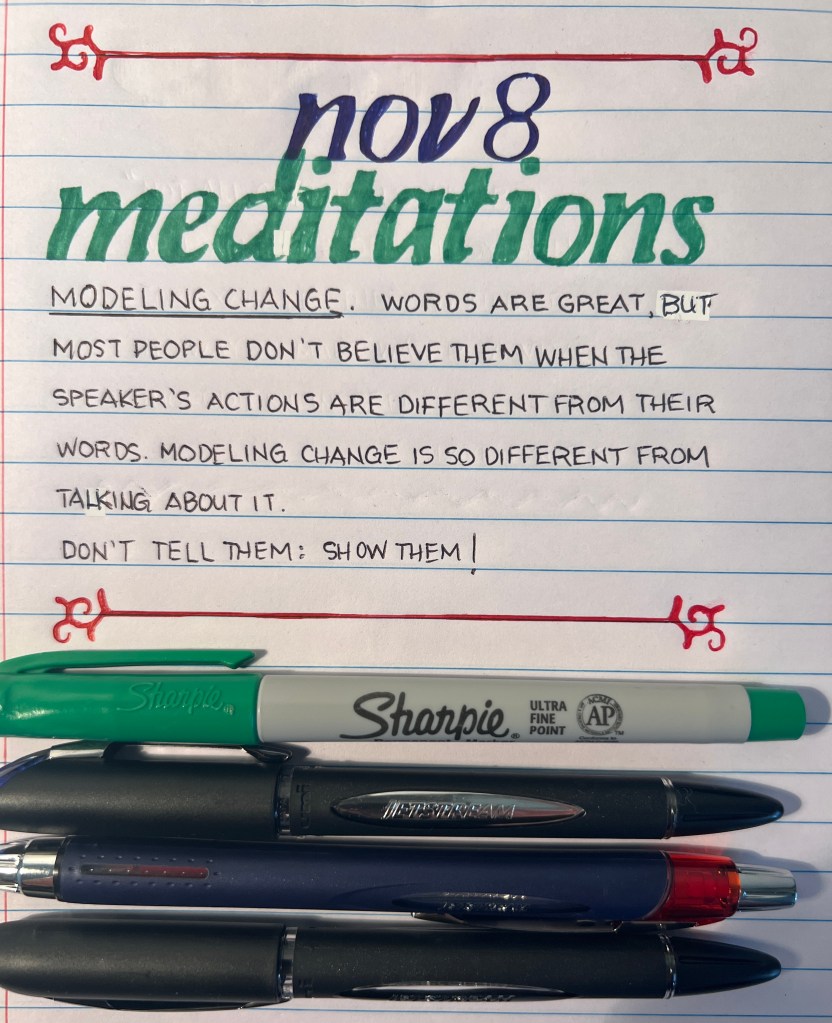 nov 8
meditations
MODELING CHANGE. WORDS ARE GREAT, BUT
MOST PEOPLE DON'T BELIEVE THEM WHEN THE
SPEAKER'S ACTIONS ARE DIFFERENT FROM THEIR
WORDS. MODELING CHANGE IS SO DIFFERENT FROM
TALKING ABOUT IT.
DON'T TELL THEM: SHOW THEM!
Sharpie®
Sharpie®
ULTRA
FINE
POINT
ACMI
AP
TM
JETSTREAM